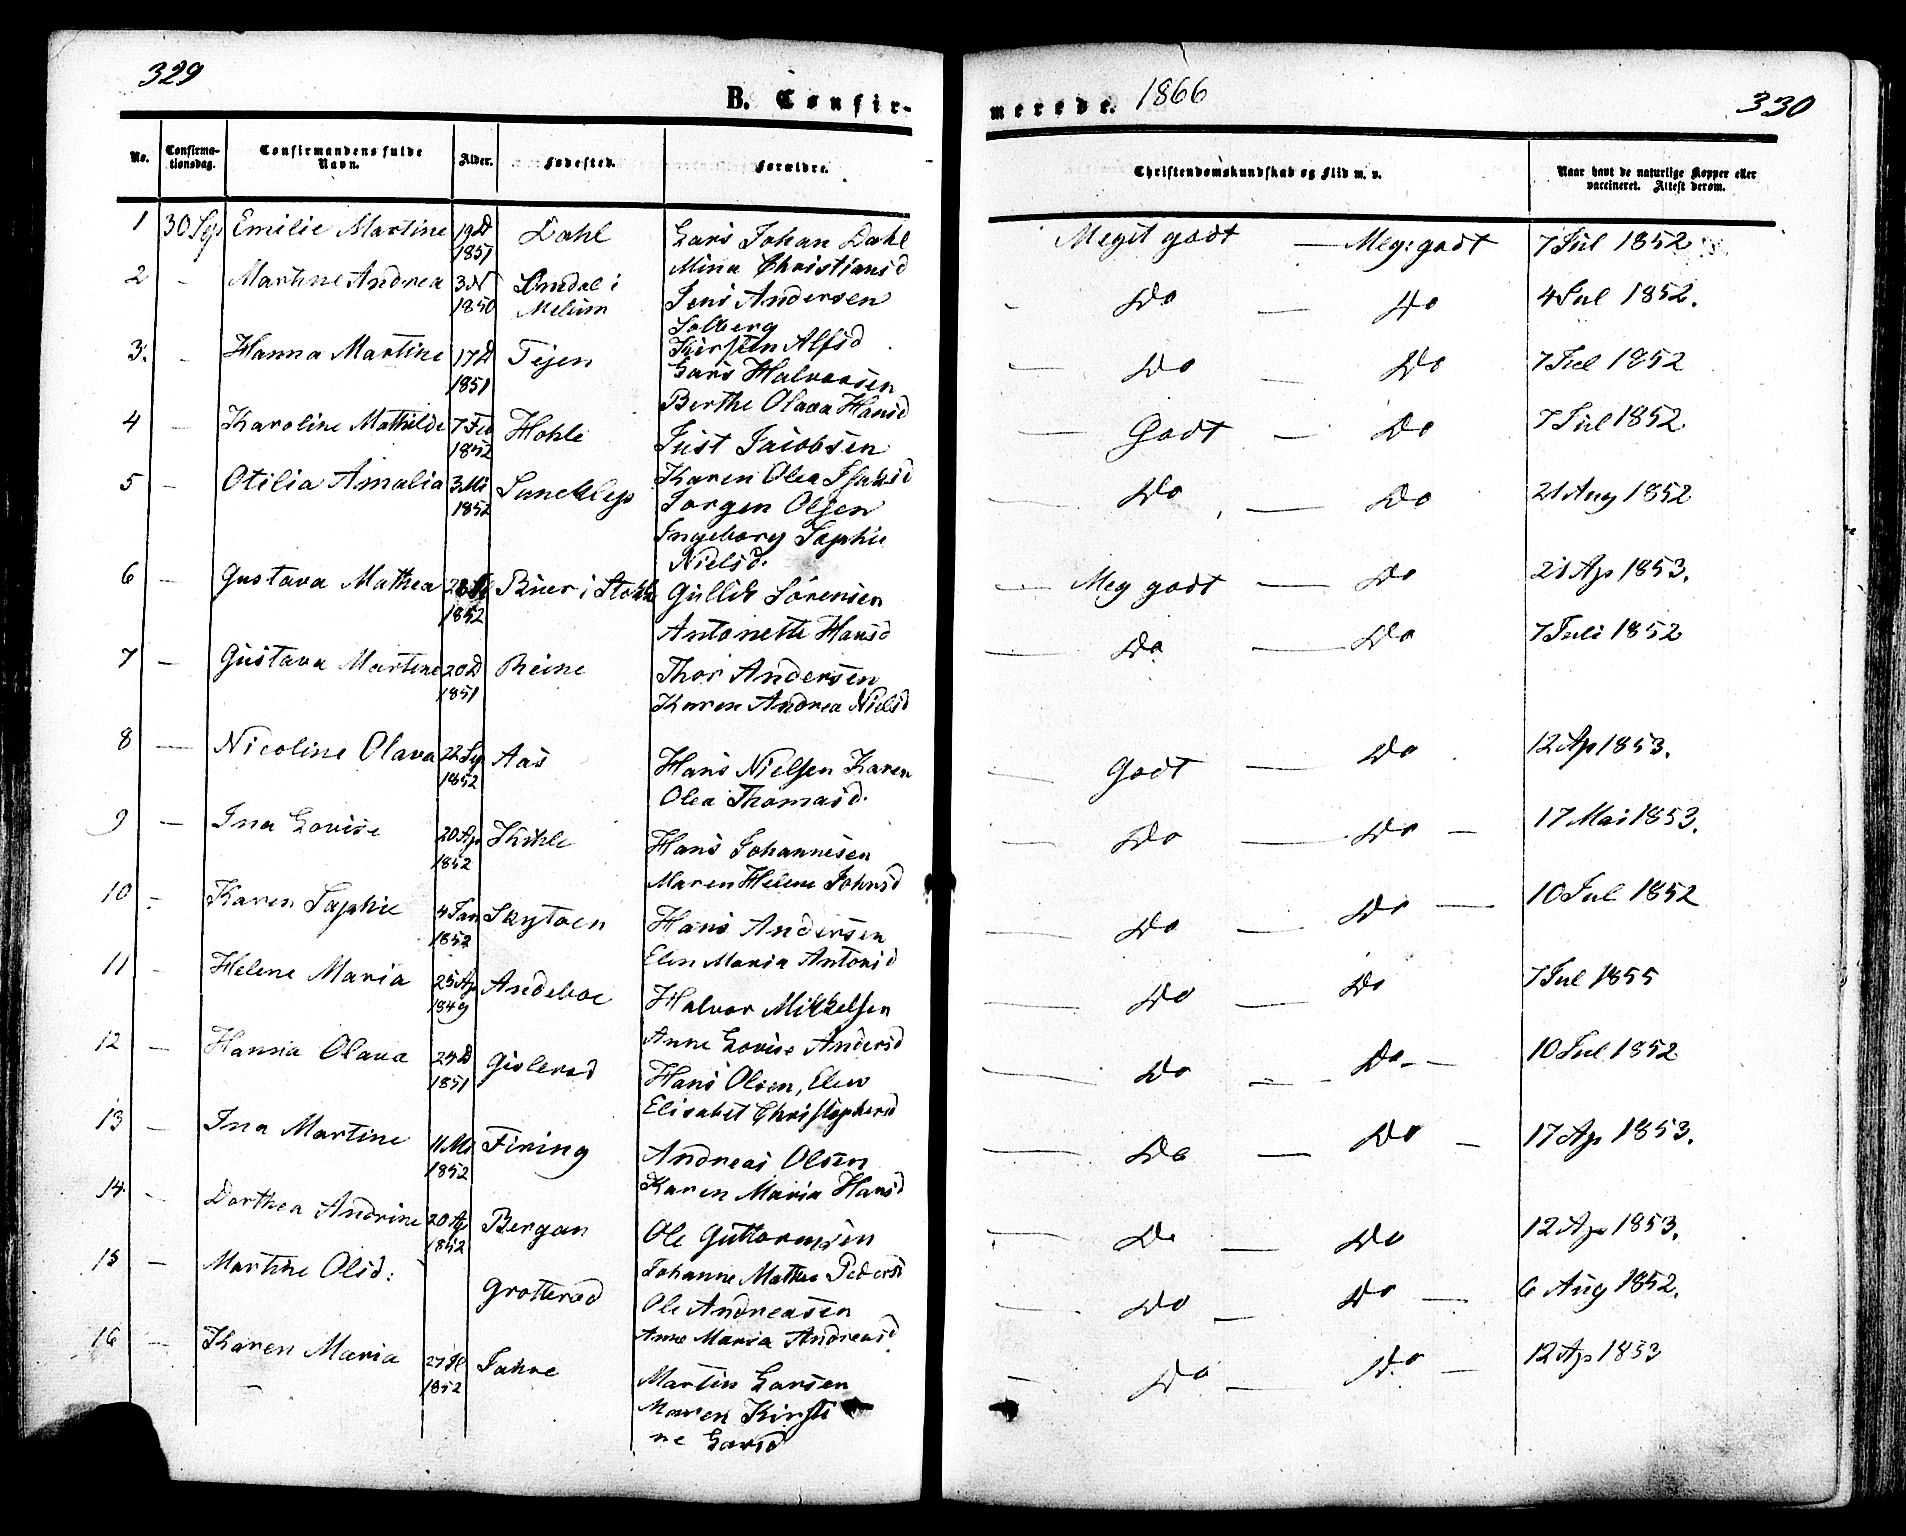 329
B. Confir-
merede. 1866
330
No. Confirmationsdag. Confirmandens fulde Navn. Alder. Fødested. Forældre. Christendomskundskab og Flid m. v. Naar havt de naturlige Kopper eller vaccineret. Attest derom.
1 30 Sep Emilie Martine 19 D 1851 Dahl Lars Johan Dahl Meget godt — Meg: godt 7 Jul 1852
Mina Christiansd
2 - Martine Andrea 3 N 1850 Lindal i Melum Jens Andersen Solberg - Do — Do 4 Jul 1852.
Kirsten Alfsd
3. - Hanna Martine 17 D 1851 Tejen Lars Halvorsen — Do — Do 7 Jul 1852
Berthe Olava Hansd
4 — Karoline Mathilde 7 Feb 1852 Hohle Just Jacobsen — Godt — Do 7 Jul 1852
Karen Olea Isaksd
5 — Otilia Amalia 3 Mi 1852 Sørgen Olsen — Do — Do 21 Aug 1852
Ingeborg Sophie
Nielsd.
6 — Gustava Mathea 1852 i Stokke Gullik Sörensen — Meg godt — Do 21 Ap 1853.
Antonette Hansd
7 — Gustava Martine 20 D 1851 Reine Thor Andersen — Do — Do 7 Juli 1852
Karen Andrea Nielsd
8 — Nicoline Olava 22 Sep 1852 Aas Hans Nielsen Karen — Godt — Do 12 Ap 1853.
Olea Thomasd.
9 — Ina Lovise 20 Ap 1852 Kihle Hans Johannesen — Do — Do — 17 Mai 1853.
Maren Helene Johnsd
10 - Karen Sophie 4 Jan 1852 Skytoen Hans Andersen — Do — Do — 10 Jul 1852
Elen Maria Antonsd
11 - Helene Maria 25 Ap 1849 Andeboe Halvor Mikkelsen — Do — Do 7 Jul 1855
Anne Lovise Andersd
12 — Hanna Olava 24 D 1851 Gislerød Hans Olsen, Elen — Do — Do — 10 Jul 1852
Elisabet Christophersd
13 — Ina Martine 11 Ms 1852 Firing Andreas Olsen — Do — Do — 17 Ap 1853.
Karen Maria Hansd
14. — Dorthea Andrine 20 Ap 1852 Bergan Ole Guttormsen — Do — Do 12 Ap 1853.
Johanne Mathea Pedersd
15 — Martine Olsd: Grotterød Ole Andreasen — Do — Do — 6 Aug 1852.
Anne Maria Andreasd.
16 — Karen Maria 1852 Johre Martin Larsen — Do — Do — 12 Ap 1853
Maren Kirsti
ne Larsd